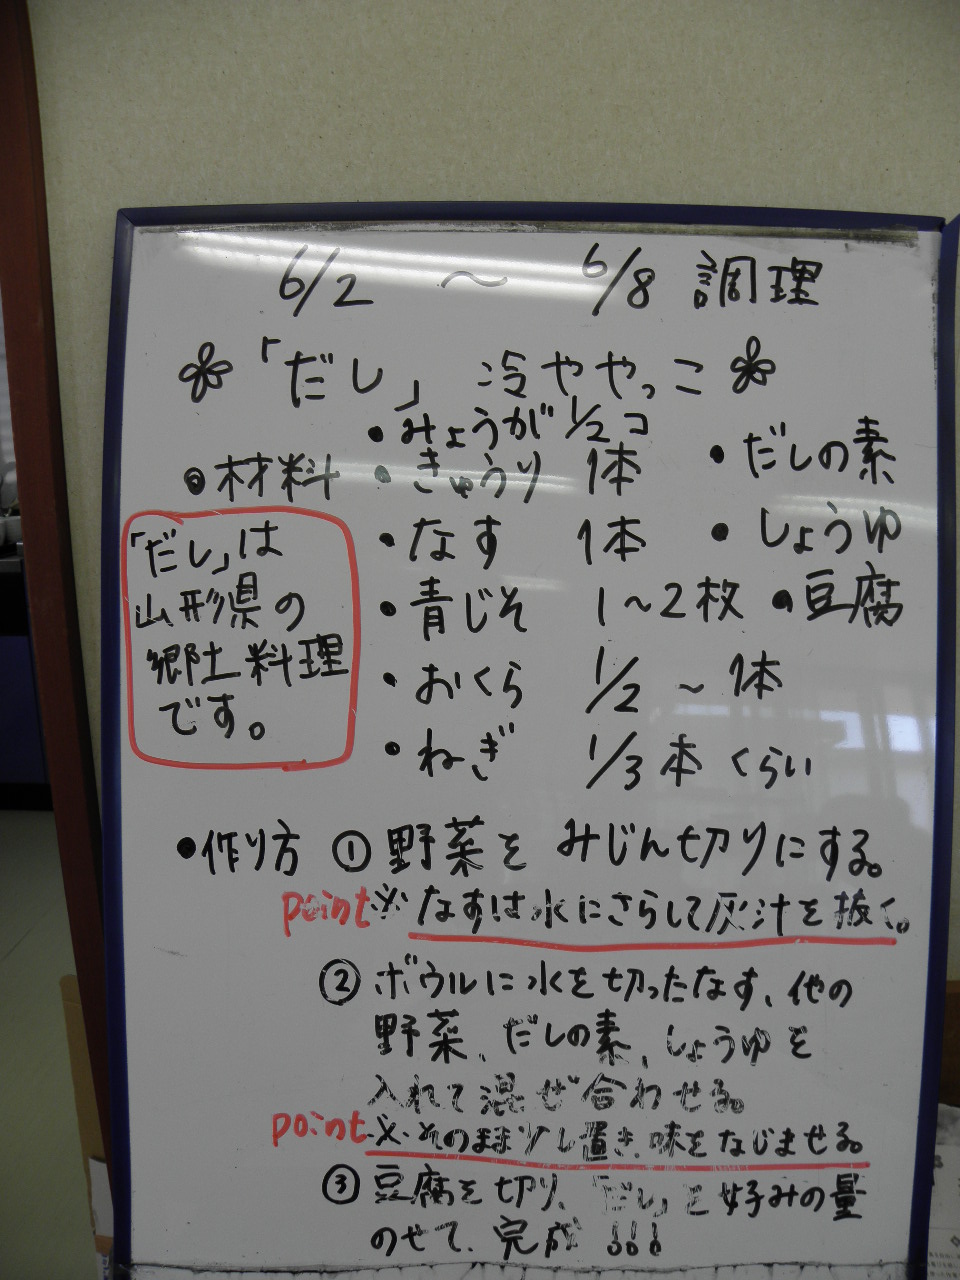 6/2 ～ 6/8 調理
「だし」 冷ややっこ
・みょうが 1/2コ
・材料 ・きゅうり 1本 ・だしの素
・なす 1本 ・しょうゆ
・青じそ 1～2枚 ・豆腐
・おくら 1/2 ～ 1本
・ねぎ 1/3本くらい
「だし」は
山形県の
郷土料理
です。
・作り方 ①野菜を みじん切りにする。
point※ なすは水にさらして灰汁を抜く。
②ボウルに水を切ったなす、他の
野菜、だしの素、しょうゆを
入れて混ぜ合わせる。
point※そのまま少し置き、味をなじませる。
③豆腐を切り、「だし」を好みの量
のせて、完成!!!